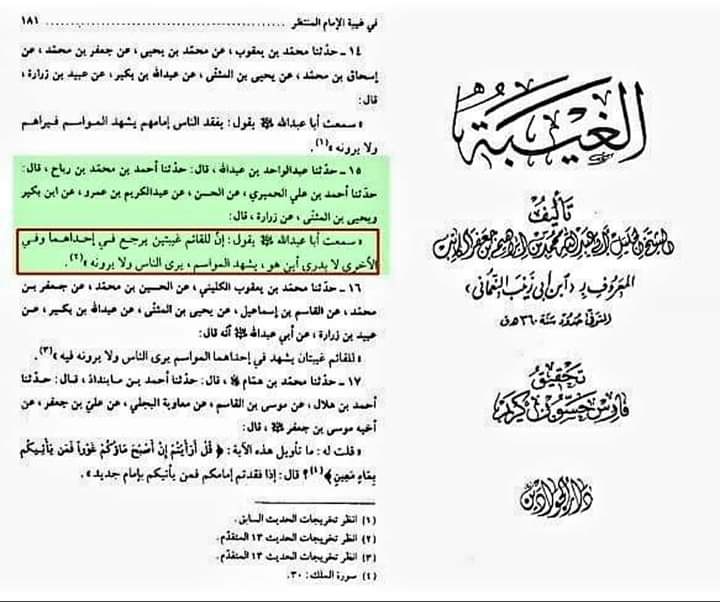 في غيبة الإمام المنتظر ........................................ ١٨١
١٤ ـ حدّثنا محمّد بن يعقوب ، عن محمّد بن يحيى ، عن جعفر بن محمّد ، عن
إسحاق بن محمّد ، عن يحيى بن المثنّى ، عن عبدالله بن بكير ، عن عبيد بن زرارة ،
قال:
« سمعت أبا عبدالله ﷺ يقول: يفقد الناس إمامهم يشهد المواسم فيراهم
ولا يرونه »(١).
١٥ ـ حدّثنا عبدالواحد بن عبدالله ، قال: حدّثنا أحمد بن محمّد بن رباح ، قال:
حدّثنا أحمد بن علي الحميري ، عن الحسن ، عن عبدالكريم بن عمرو ، عن ابن بكير
ويحيى بن المثنّى ، عن زرارة ، قال:
« سمعت أبا عبدالله ﷺ يقول: إنّ للقائم غيبتين يرجع في إحداهما وفي
الأخرى لا يدرى أين هو ، يشهد المواسم ، يرى الناس ولا يرونه »(٢).
١٦ ـ حدّثنا محمّد بن يعقوب الكليني ، عن الحسين بن محمّد ، عن جعفر بن
محمّد ، عن القاسم بن إسماعيل ، عن يحيى بن المثنّى ، عن عبدالله بن بكير ، عن
عبيد بن زرارة ، عن أبي عبدالله ﷺ أنّه قال:
« للقائم غيبتان يشهد في إحداهما المواسم يرى الناس ولا يرونه فيه »(٣).
١٧ ـ حدّثنا محمّد بن همّام ، قال: حدّثنا أحمد بن مابنداذ ، قال: حدّثنا
أحمد بن هلال ، عن موسى بن القاسم ، عن معاوية البجلي ، عن عليّ بن جعفر ، عن
أخيه موسى بن جعفر ، قال:
« قلت له: ما تأويل هذه الآية: ﴿ قُلْ أَرَأَيْتُمْ إِنْ أَصْبَحَ مَاؤُكُمْ غَوْراً فَمَن يَأْتِيكُم
بِمَاءٍ مَعِينٍ ﴾(٤)؟ قال: إذا فقدتم إمامكم فمن يأتيكم بإمام جديد ».
(١) انظر تخريجات الحديث السابق.
(٢) انظر تخريجات الحديث ١٣ المتقدّم.
(٣) انظر تخريجات الحديث ١٣ المتقدّم.
(٤) سورة الملك: ٣٠.
الغيبة
تأليف
الشيخ الجليل أبي عبدالله محمد بن إبراهيم بن جعفر الكاتب
المعروف بـ «ابن أبي زينب النعماني»
المتوفى حدود سنة ٣٦٠ هـ ق
تحقيق
فارس حسون كريم
دار الجوادين